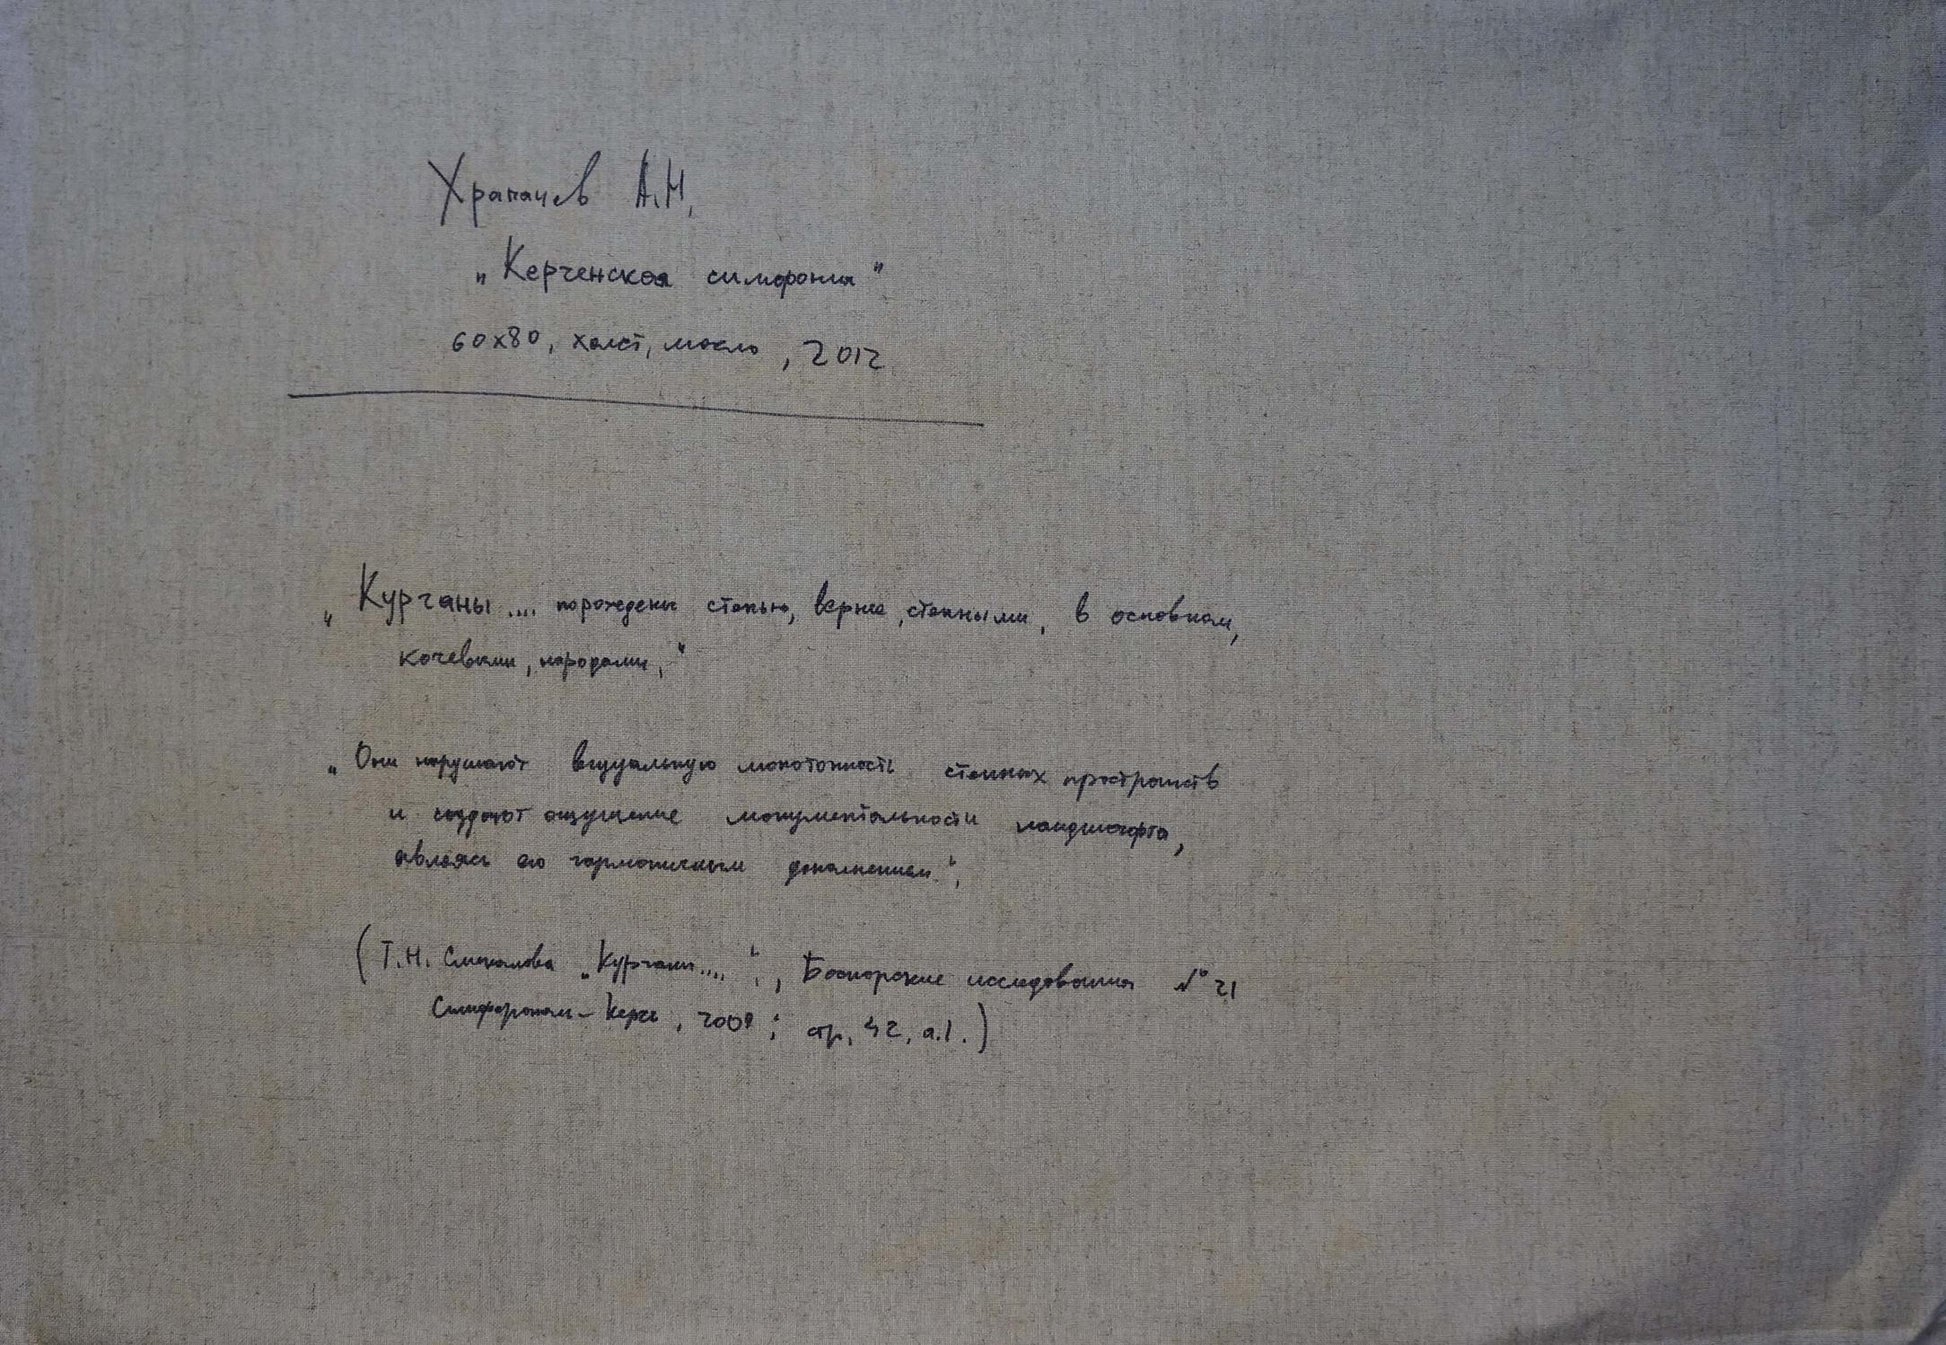 Храпачев А.Н.
„Керченская симфония"
60х80, холст, масло, 2012
„Курганы .... порождены степью, вернее, степными, в основном,
кочевыми, народами,"
„Они нарушают визуальную монотонность степных пространств
и создают ощущение монументальности ландшафта,
являясь его гармоничным дополнением.",
(Т.Н. Смекалова „Курганы....", Боспорские исследования № 21
Симферополь - Керчь, 2009; стр. 42, а.1.)